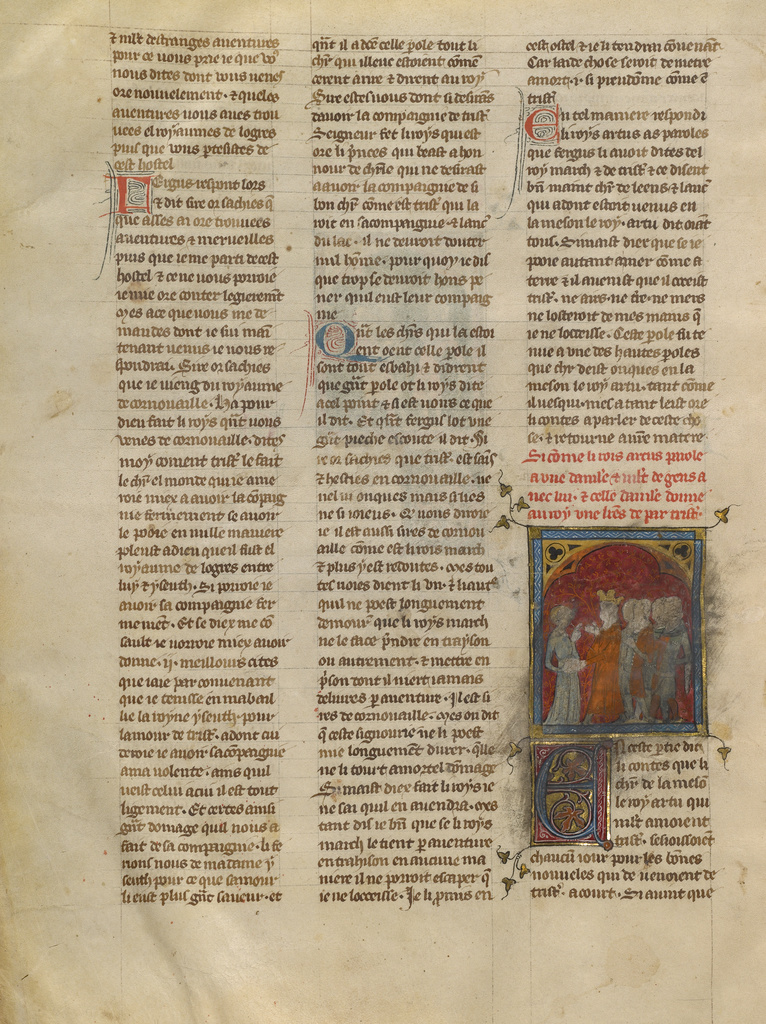 ⁊ mlt destranges auentures
pour ce vous prie ie que vo⁹
nous dites dont vous uenes
ore nouuelement · ⁊ queles
auentures vous aues trou
uees el royaumes de logres
puis que vous ꝑtesistes de
cest hostel
Fergus respont lors
⁊ dit sire or sachies q̄
que asses ai ore trouuees
auentures ⁊ merueilles
puis que ie me parti de cest
hostel ⁊ ce ne vous porroie
ie mie ore conter legierement
Mes a ce que vous me de
mandes dont ie sui main
tenant uenus ie uous re
spondrai · Sire or sachies
que ie uieng du royaume
de cornouaille · Ha pour
dieu fait li roys q̄nt uous
venes de cornouaille · dites
moy coment trist̄ le fait
le chr̄ el monde qui ie aim
roie miex a auoir la cōpaig
nie · fermement se auoir
le pooie en nulle maniere
pleust a dieu que il fust el
royaume de logres entre
luy ⁊ yseuth · Si porroie ie
auoir sa compaignie fer
mement · Et se diex me cō
sault ie uorroie miex auoir
donne · ii · meillours cites
que iaie par conuenant
que ie tenisse en ma bail
lie la royne yseuth · pour
lamour de trist̄ · adont cui
deroie ie auoir sa cōpaignie
a ma uolente · ains quil
ueist celui a cui il est tout
ligement · Et certes ainsi
grāt domage quil nous a
fait de sa compaignie · li fe
rions nous de madame y
seuth pour ce que samour
li eust plus grāt saueur · et
q̄nt il a dcē celle ꝑole tout li
chr̄ qui illeuc estoient cōme
cerent a rire ⁊ dirent au roy
Sire estes uous dont si desirās
dauoir la compaignie de trist̄
Seigneur fet li roys qui est
ore li p̄nces qui beast a hon
nour de chr̄le qui ne desirast
a auoir la compaignie de si
bon chr̄ cōme est trist̄ qui la
roit en sa compaignie · ⁊ lanc̄
du lac · il ne deuroit douter
mil hōme · pour quoy ie dis
que trop se deuroit hons pe
ner quil eust leur compaig
nie
Qūt les chr̄s qui la estoi
ent oent celle pole il
sont tout esbahi ⁊ didrent
que grāt ꝑole ot li roys dite
a cel point ⁊ si est uous ce que
il dit · Et q̄nt fergus lot une
grāt pieche escoute il dit · Si
re or sachies que trist̄ · est sains
⁊ hesties en cornouaille · ne
nel ui onques mais si lies
ne si ioieus · Et uous diroie
ie il est aussi sires de cornou
aille cōme est li rois march
⁊ plus y est redoutes · Mes tou
tes uoies dient li un · ⁊ li autᵉ
quil ne poest longuement
demourer que li roys march
ne le face p̄ndre en trayson
ou autrement · ⁊ mettre en
p̄son dont il niert iamais
deliures ꝑ auenture · Il est si
res de cornouaille · Mes on dit
q̄ ceste signourie ne li poest
mie longuement durer · q̄lle
ne li tourt a mortel dōmage
Si maist diex fait li roys ie
ne sai quil en auendra · Mes
tant dis ie bn̄ que se li roys
march le tient ꝑ auenture
en trahison en aucune ma
niere il ne porroit escaper q̄
ie ne locceisse · Je li ꝓmis en
cest ostel ⁊ ie li tendrai cōuenant
Car laide chose seroit de metre
a mort · i · si preudōme cōme ē
trist̄
En tel maniere respondi
li roys artus as paroles
que fergus li auoit dites del
roy march ⁊ de trist̄ · ⁊ ce disent
bn̄ maint chr̄ de leens ⁊ lanc̄
qui adont estoit uenus en
la meson le roy · artu dit oiant
tous · Si maist diex que se ie
pooie autant amer cōme a
terre ⁊ il auenist que il oceist
trist̄ · ne airs · ne fre · ne mers
ne losteroit de mes mains q̄
ie ne locceisse · Ceste ꝑole fu te
nue a une des hautes ꝑoles
que chr̄ deist onques en la
meson le roy artu · tant cōme
il uesqui · mes a tant leist ore
li contes a parler de ceste cho
se · ⁊ retourne a un̄e matere
Si cōme li rois artus parole
a vne damile ⁊ mlt de gens a
uec lui · ⁊ celle damile donne
au roy vne lr̄es de par trist̄ ·
En ceste ꝑtie dit
li contes que li
chr̄ de la mesō
le roy artu qui
mlt amoient
trist̄ · sesioissoiēt
chaucū iour pour les bōnes
nouueles qui de uenoient de
trist̄ · a court · Si auint que